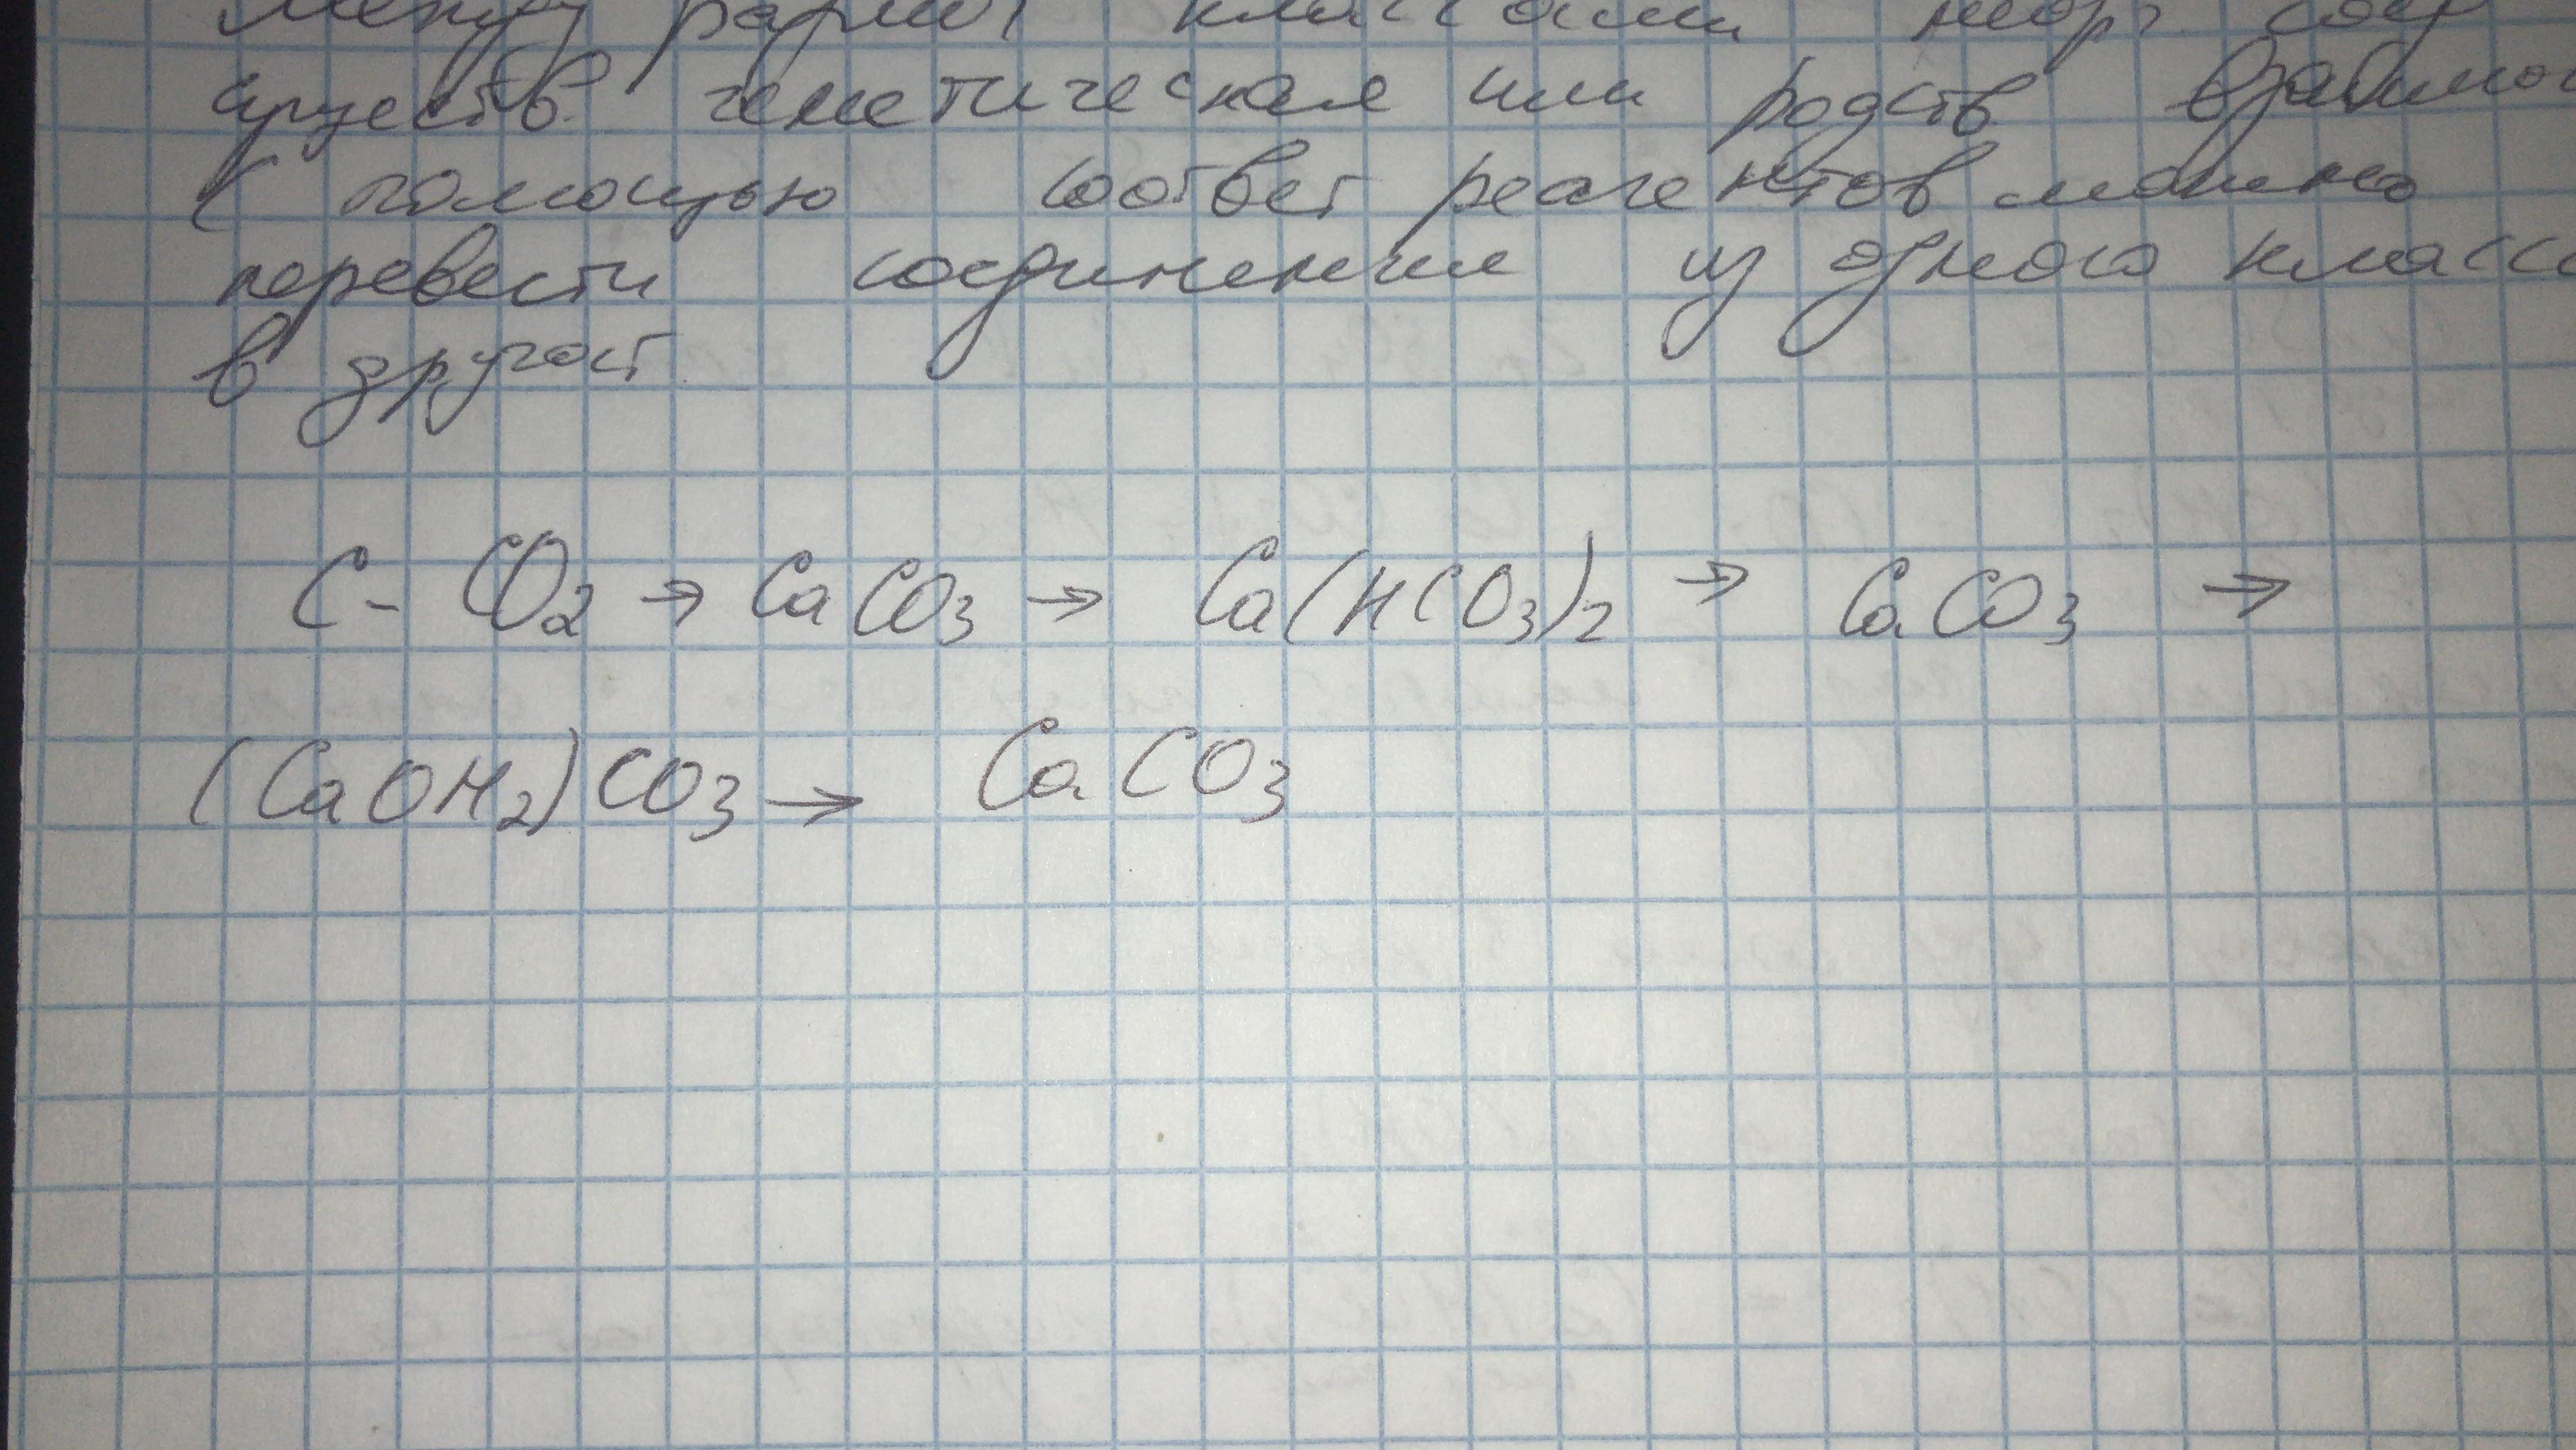 Между разл классами неорг соед
существ генетическая или родств взаимос
С помощью соответ реагентов можно
перевести соединения из одного класса
в другой
C - CO2 → CaCO3 → Ca(HCO3)2 → CaCO3 →
(CaOH2)CO3 → CaCO3